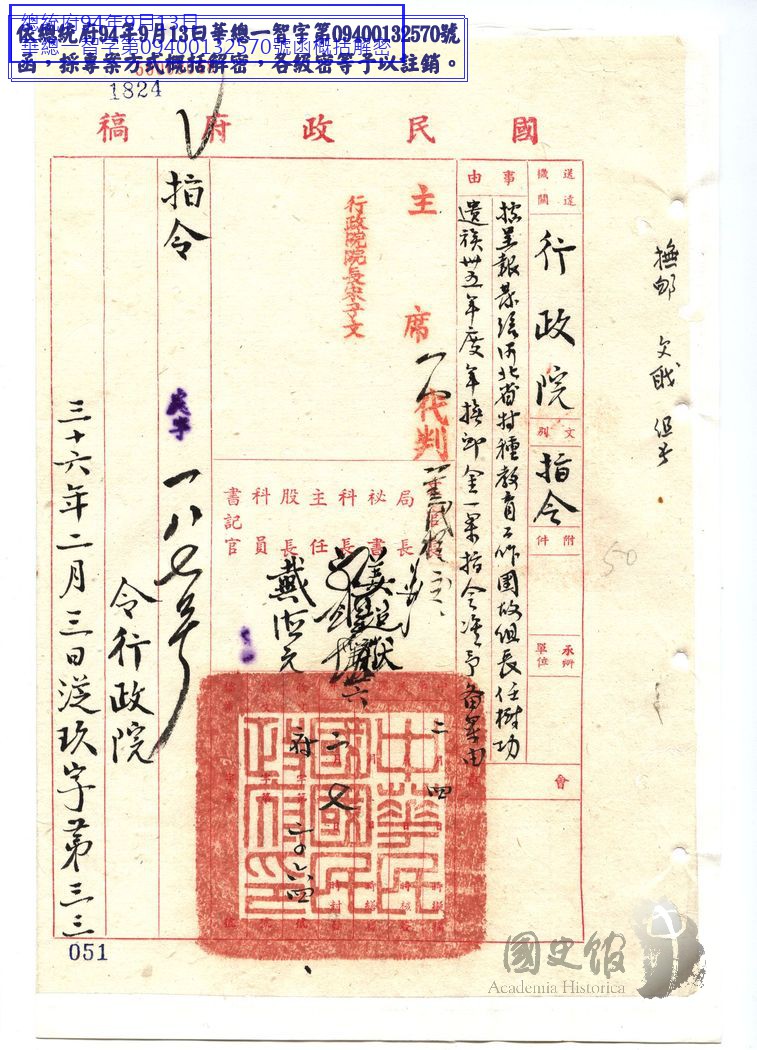 總統府94年9月13日
華總一智字第09400132570號函概括解密
依總統府94年9月13日華總一智字第09400132570號
函，採專案方式概括解密，各級密等予以註銷。
1824
國民政府稿
撫卹
文職
送達機關
行政院
文別
指令
附件
承辦單位
會
事由
據呈報恭給河北省特種教育工作團故組長任樹功
遺族卅五年度年撫卹金一案指令准予備案由
主席
代判
行政院院長宋子文
局長
秘書
科長
主任
股長
科員
書記官
戴
中華民國國民政府印
二
四
二
七
府
指令
一八七號
令行政院
三十六年二月三日從玖字第三三
051
50
國史館
Academia Historica